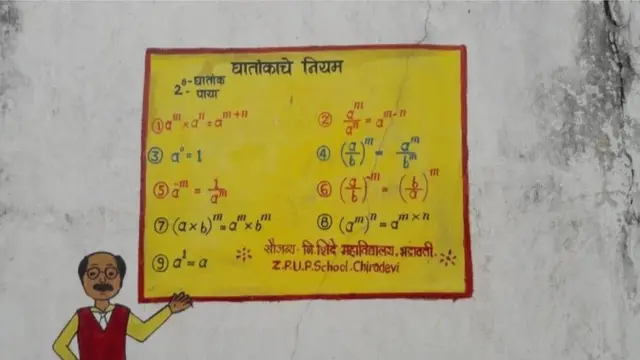 घातांकाचे नियम
2⁸- घातांक
- पाया
① aᵐ × aⁿ = aᵐ⁺ⁿ
② aᵐ/aⁿ = aᵐ⁻ⁿ
③ a⁰ = 1
④ (a/b)ᵐ = aᵐ/bᵐ
⑤ a⁻ᵐ = 1/aᵐ
⑥ (a/b)⁻ᵐ = (b/a)ᵐ
⑦ (a × b)ᵐ = aᵐ × bᵐ
⑧ (aᵐ)ⁿ = aᵐ ˣ ⁿ
⑨ a¹ = a
सौजन्य - नि. शिंदे महाविद्यालय, भद्रावती.
Z.P.U.P. School. Chiradevi